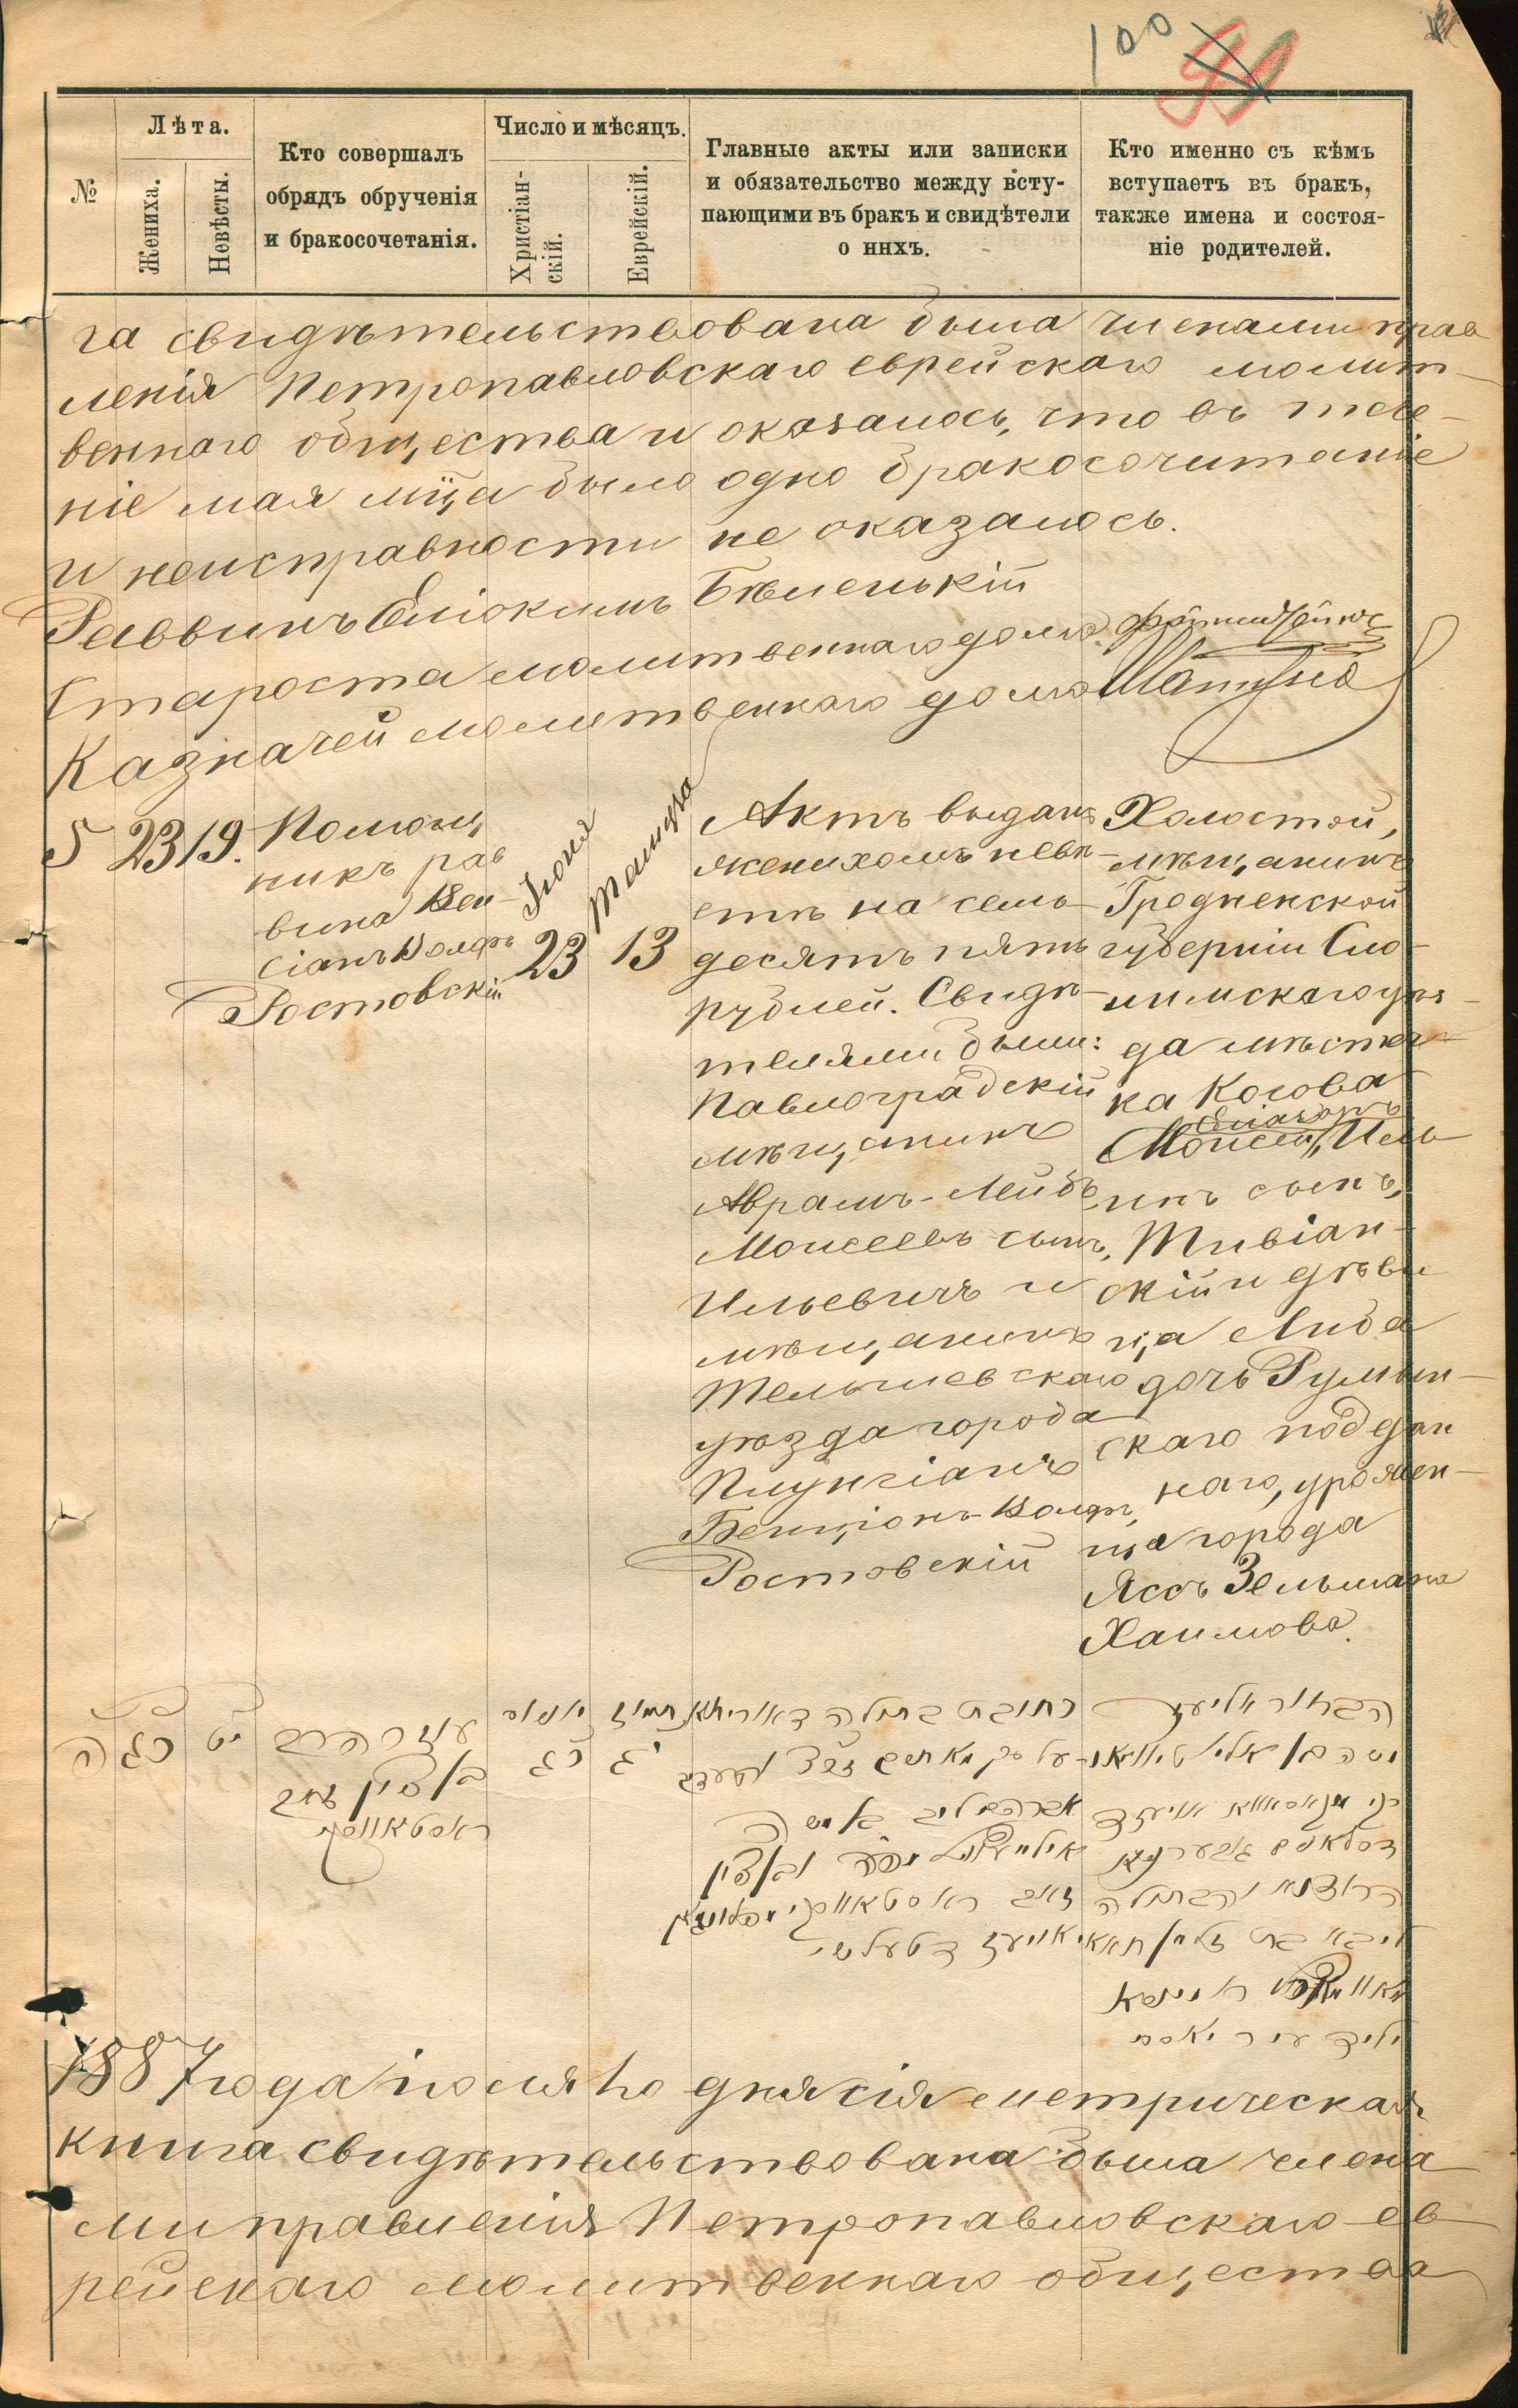 100
91
№
Лѣта.
Жениха.
Невѣсты.
Кто совершалъ
обрядъ обрученія
и бракосочетанія.
Число и мѣсяцъ.
Христіан-
скій.
Еврейскій.
Главные акты или записки
и обязательство между всту-
пающими въ бракъ и свидѣтели
о нихъ.
Кто именно съ кѣмъ
вступаетъ въ бракъ,
также имена и состоя-
ніе родителей.
га свидѣтельствована была членами прав
ленія Петропавловскаго еврейскаго молит-
веннаго общества и оказалось, что въ тече-
ніе мая мца было одно бракосочитаніе
и неисправности не оказалось.
Раввинъ Еліокимъ Бѣленькій
Староста молитвеннаго дома
Казначей молитвеннаго дома
5
23
19.
Помощ
никъ рав
вина Бен
сіанъ Волфъ
Ростовскій
Іюня
23
Тамуза
13
Актъ выданъ
женихомъ невѣ-
стѣ на семь-
десятъ пять
рублей. Свидѣ-
телями были:
Павлоградскій
мѣщанинъ
Аврамъ-Лейбъ
Моисеевъ сынъ,
Ильевичъ и
мѣщанинъ
Тельшевскаго
уѣзда города
Плунгіанъ
Бенціонъ-Волфъ,
Ростовскій
Холостой,
мѣщанинъ
Гродненской
губерніи Сло-
нимскаго уѣз-
да мѣстеч-
ка Косова
Еліазаръ
Моисей, Иль-
инъ сынъ,
Тивіан-
скій и дѣви
ца Либа
дочь Румын-
скаго поддан
наго, урожен-
ца города
Яссъ Зельмана
Хаимова.
כגה
יט
עוזר הרב
בן ציון זאב
ראסטאווסקי
יוניוס
כג
תמוז
יג
כתובת בתולה דאוריתא
אברהם ליב בן משה
זאב ראסטאווסקי
הבחור אליעזר
משה בן אלי
והבתולה
ליבא בת זלמן
יליד עיר יאסי
1887 года іюля 1го дня сія метрическая
книга свидѣтельствована была члена
ми правленія Петропавловскаго ев
рейскаго молитвеннаго общества